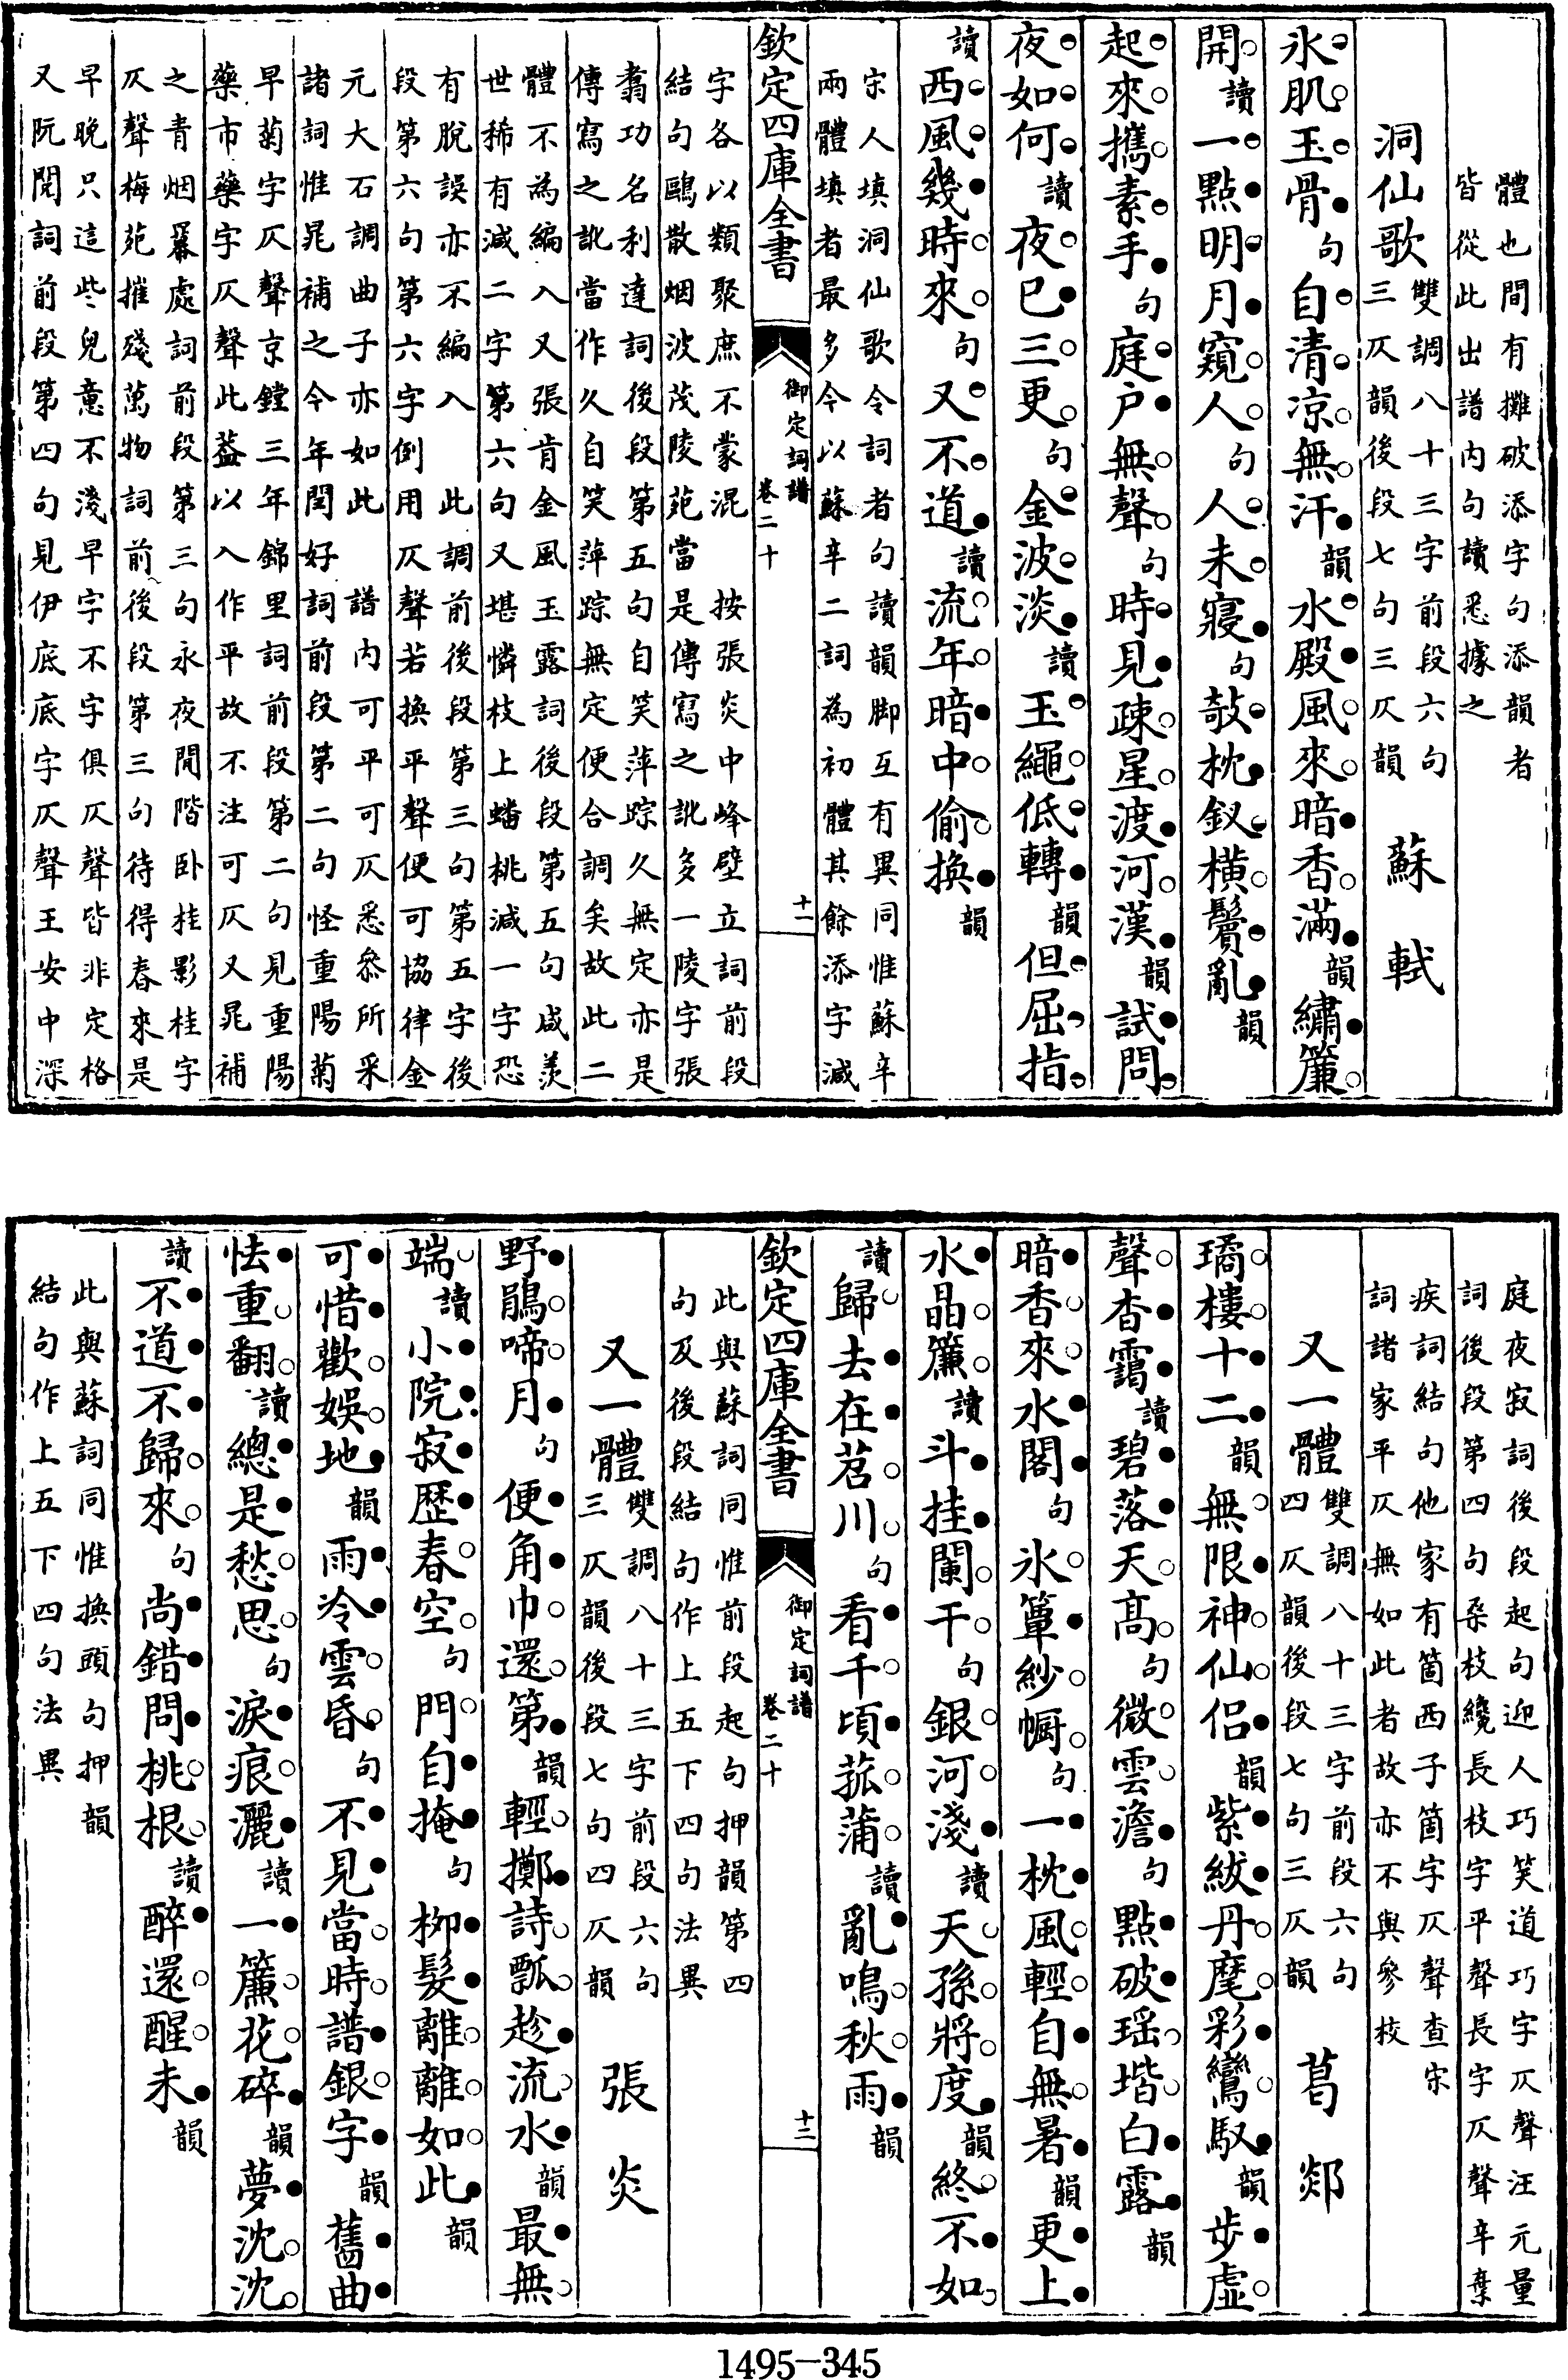 體也間有攤破添字句添韻者
皆從此出譜内句讀悉據之
洞仙歌雙調八十三字前段六句
三仄韻後段七句三仄韻
蘇軾
氷肌玉骨句自清凉無汗韻水殿風來暗香滿韻繡簾
開讀一點明月窺人句人未寢句攲枕釵横鬢亂韻
起來攜素手句庭户無聲句時見疎星渡河漢韻試問
夜如何讀夜已三更句金波淡讀玉繩低轉韻但屈指
讀西風幾時來句又不道讀流年暗中偷換韻
宋人填洞仙歌令詞者句讀韻脚互有異同惟蘇辛
兩體填者最多今以蘇辛二詞為初體其餘添字減
欽定四庫全書
御定詞譜
卷二十
十一
字各以類聚庶不蒙混　按張炎中峰壁立詞前段
結句鷗散烟波茂陵苑當是傳寫之訛多一陵字張
翥功名利達詞後段第五句自笑萍踪久無定亦是
傳寫之訛當作久自笑萍踪無定便合調矣故此二
體不為編入又張肯金風玉露詞後段第五句咸羨
世稀有減二字第六句又堪憐枝上蟠桃減一字恐
有脱誤亦不編入　此調前後段第三句第五字後
段第六句第六字例用仄聲若換平聲便可協律金
元大石調曲子亦如此　譜内可平可仄悉叅所采
諸詞惟晁補之今年閏好詞前段第二句怪重陽菊
早菊字仄聲京鏜三年錦里詞前段第二句見重陽
藥市藥字仄聲此葢以入作平故不注可仄又晁補
之青烟羃處詞前段第三句永夜閒階卧桂影桂字
仄聲梅苑摧殘萬物詞前後段第三句待得春來是
早晚只這些兒意不淺早字不字俱仄聲皆非定格
又阮閱詞前段第四句見伊底底底字仄聲王安中深
庭夜寂詞後段起句迎人巧笑道巧字仄聲汪元量
詞後段第四句朶枝纔長枝字平聲長字仄聲辛棄
疾詞結句他家有箇西子箇字仄聲查宋
詞諸家平仄無如此者故亦不與參校
又一體雙調八十三字前段六句
四仄韻後段七句三仄韻
葛郯
璚樓十二韻無限神仙侣韻紫紱丹麾彩鸞馭韻步虚
聲杳靄讀碧落天髙句微雲澹句點破瑶堦白露韻
暗香來水閣句氷簟紗㡡句一枕風輕自無暑韻更上
水晶簾讀斗挂闌干句銀河淺讀天孫將度韻終不如
讀歸去在苕川句看千頃菰蒲讀亂鳴秋雨韻
欽定四庫全書
御定詞譜
卷二十
十二
此與蘇詞同惟前段起句押韻第四
句及後段結句作上五下四句法異
又一體雙調八十三字前段六句
三仄韻後段七句四仄韻
張炎
野鵑啼月句便角巾還第韻輕擲詩瓢趁流水韻最無
端讀小院寂歴春空句門自掩句栁髮離離如此韻
可惜歡娛地韻雨冷雲昏句不見當時譜銀字韻舊曲
怯重翻讀總是愁思句淚痕灑讀一簾花碎韻夢沈沈
讀不道不歸來句尚錯問桃根讀醉還醒未韻
此與蘇詞同惟換頭句押韻
結句作上五下四句法異
1495-345